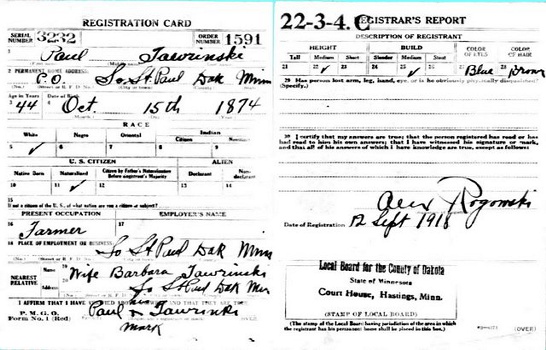 REGISTRATION CARD
SERIAL NUMBER 3232 ORDER NUMBER 1591
1 Paul Jawrinski
2 PERMANENT HOME ADDRESS:
P.O. So St Paul Dak Minn
Age in Years Date of Birth
3 44 4 Oct. 15th 1874
RACE
White Negro Oriental Indian
Citizen Noncitizen
5 ✓ 6 7 8 9
U. S. CITIZEN ALIEN
Native Born Naturalized Citizen by Father's Naturalization Before Registrant's Majority Declarant Non-declarant
10 11 ✓ 12 13 14
15
If not a citizen of the U. S., of what nation are you a citizen or subject?
PRESENT OCCUPATION EMPLOYER'S NAME
16 Farmer 17
18 PLACE OF EMPLOYMENT OR BUSINESS:
So St Paul Dak Minn
NEAREST RELATIVE Name 19 Wife Barbara Jawrinski
Address 20 So St Paul Dak Min
I AFFIRM THAT I HAVE
P. M. G. O.
Form No. 1 (Red)
Paul x Jawrinski
mark
22-3-4. C REGISTRAR'S REPORT
DESCRIPTION OF REGISTRANT
HEIGHT BUILD COLOR OF EYES COLOR OF HAIR
Tall Medium Short Slender Medium Stout
21 22 ✓ 23 24 25 ✓ 26 27 Blue 28 Brown
29 Has person lost arm, leg, hand, eye, or is he obviously physically disqualified?
(Specify.)
30 I certify that my answers are true; that the person registered has read or has
had read to him his own answers; that I have witnessed his signature or mark,
and that all of his answers of which I have knowledge are true, except as follows:
Alex Rogowski
Date of Registration 12 Sept 1918
Local Board for the County of Dakota
State of Minnesota
Court House, Hastings, Minn.
(STAMP OF LOCAL BOARD)
(The stamp of the Local Board having jurisdiction of the area in which
the registrant has his permanent home shall be placed in this box.)
(OVER)